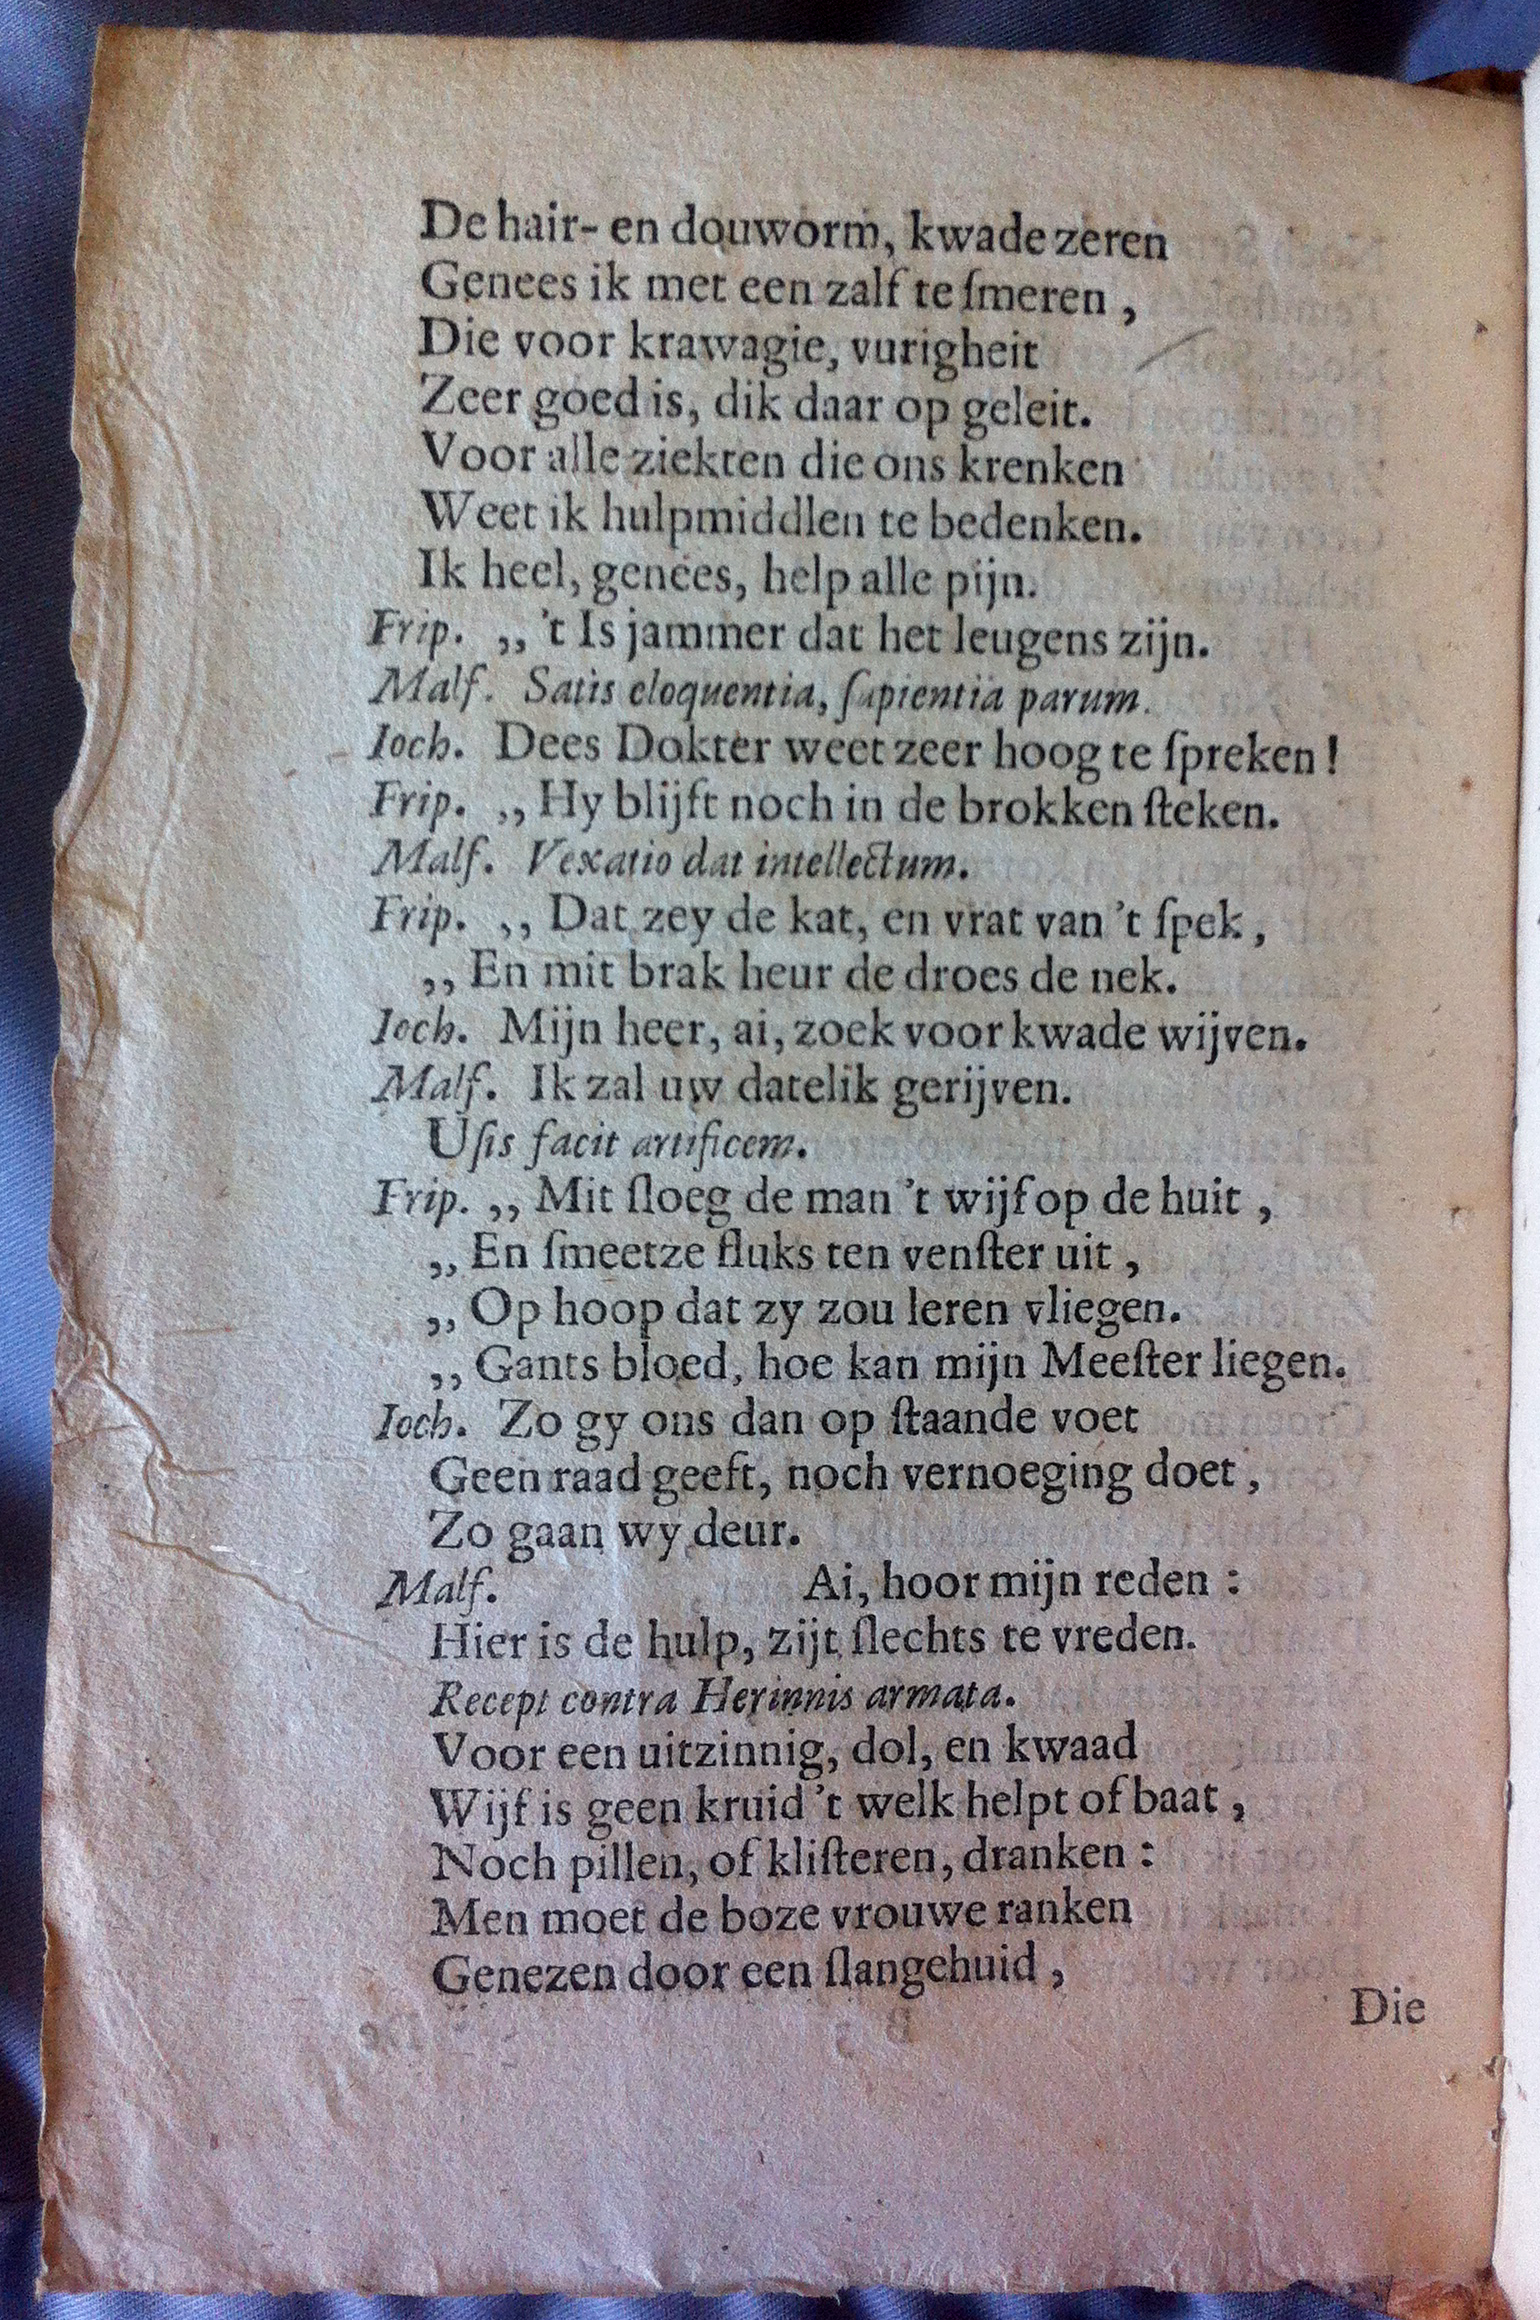 De hair- en douworm, kwade zeren
Genees ik met een zalf te ſmeren ,
Die voor krawagie, vurigheit
Zeer goed is, dik daar op geleit.
Voor alle ziekten die ons krenken
Weet ik hulpmiddlen te bedenken.
Ik heel, genees, help alle pijn.
Frip. ,, 't Is jammer dat het leugens zijn.
Malf. Satis eloquentia, ſapientia parum.
Ioch. Dees Dokter weet zeer hoog te ſpreken !
Frip. ,, Hy blijft noch in de brokken ſteken.
Malf. Vexatio dat intellectum.
Frip. ,, Dat zey de kat, en vrat van 't ſpek ,
,, En mit brak heur de droes de nek.
Ioch. Mijn heer, ai, zoek voor kwade wijven.
Malf. Ik zal uw datelik gerijven.
Uſis facit artificem.
Frip. ,, Mit ſloeg de man 't wijf op de huit ,
,, En ſmeetze fluks ten venſter uit ,
,, Op hoop dat zy zou leren vliegen.
,, Gants bloed, hoe kan mijn Meeſter liegen.
Ioch. Zo gy ons dan op ſtaande voet
Geen raad geeft, noch vernoeging doet ,
Zo gaan wy deur.
Malf. Ai, hoor mijn reden :
Hier is de hulp, zijt ſlechts te vreden.
Recept contra Herinnis armata.
Voor een uitzinnig, dol, en kwaad
Wijf is geen kruid 't welk helpt of baat ,
Noch pillen, of kliſteren, dranken :
Men moet de boze vrouwe ranken
Genezen door een ſlangehuid ,
Die